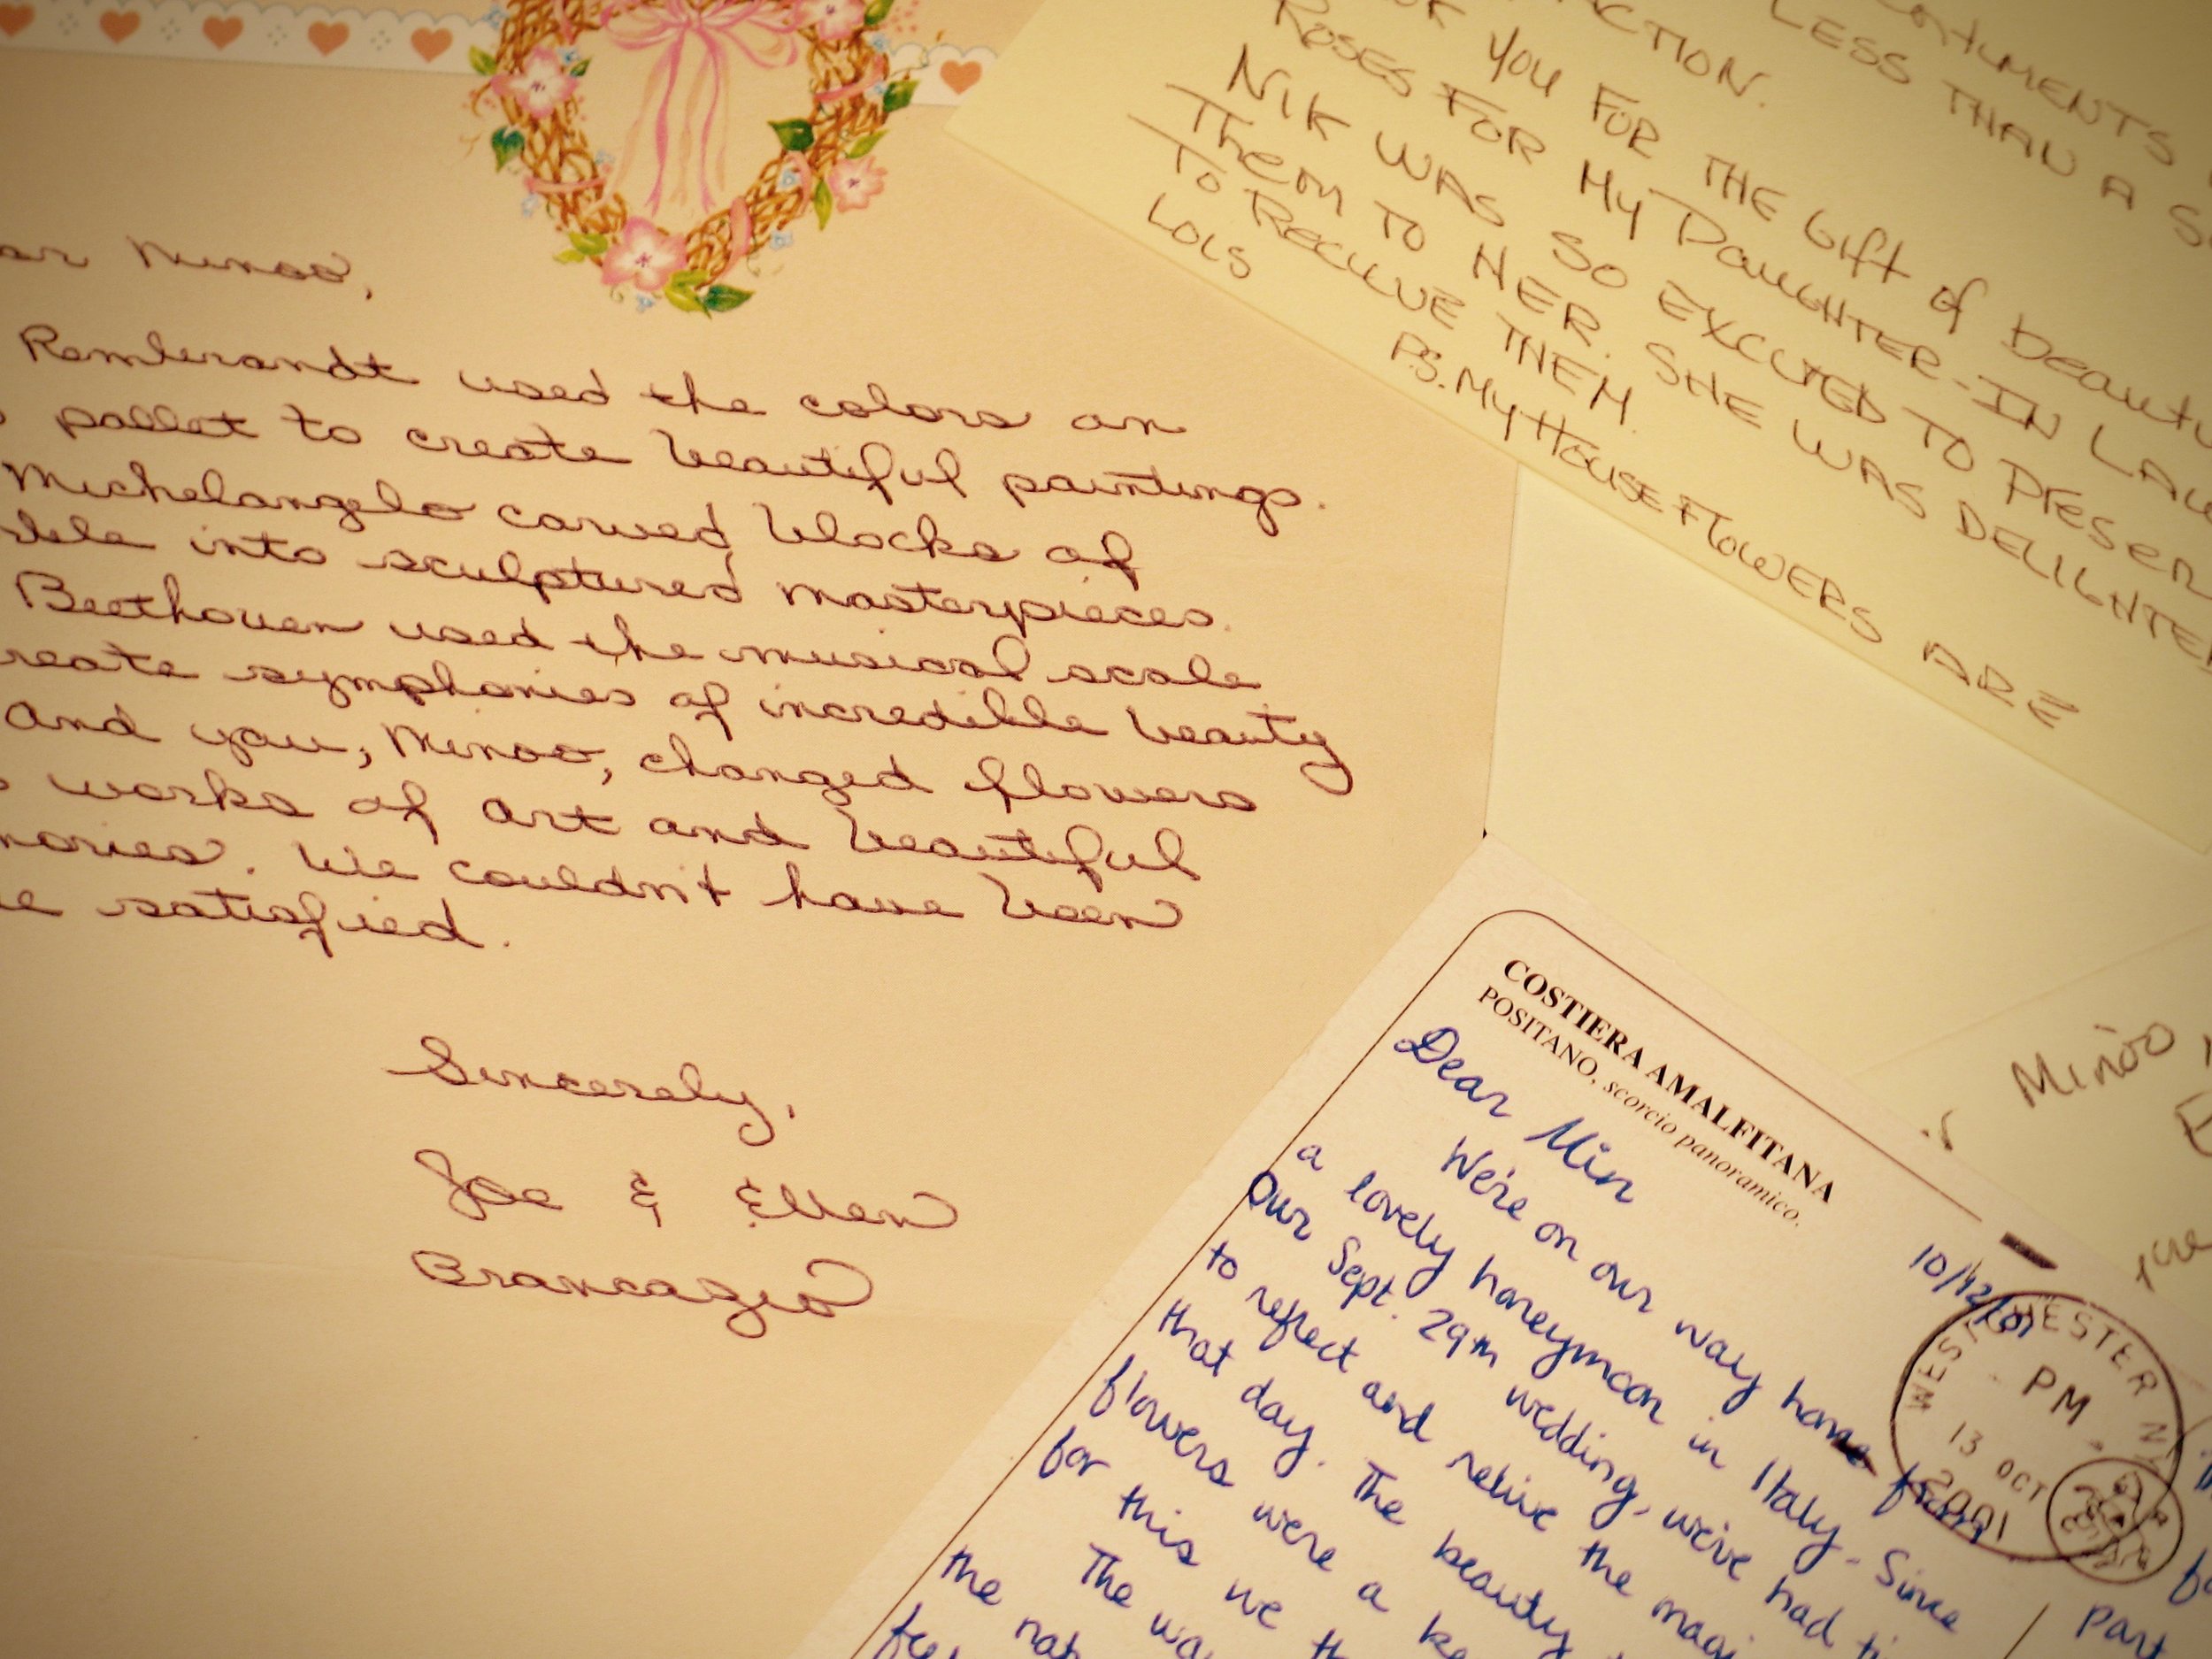 Minoo,
Rembrandt used the colors on
pallet to create beautiful paintings.
Michelangelo carved blocks of
into sculptured masterpieces.
Beethoven used the musical scale
reate symphonies of incredible beauty
And you, Minoo, changed flowers
works of art and beautiful
mories. We couldn't have been
satisfied.
Sincerely,
Joe & Ellen
Brancagio
LESS THAN A
CTION.
YOU FOR THE Gift of Beauti
ROSES FOR My DAUGHTER-IN LAW
NIK WAS SO EXCITED TO PRESEN
Them TO HER. SHE WAS DELIGHTE
To RECEIVE THEM.
LOIS
P.S. My HOUSE FLOWERS ARE
Minoo
COSTIERA AMALFITANA
POSITANO, scorcio panoramico.
10/12/01
Dear Min
We're on our way home from
a lovely honeymoon in Italy. Since
our Sept. 29th wedding, we've had ti
to reflect and relive the magi
that day. The beauty
flowers were a ke
for this we th
The wa
the nat
WESTCHESTER NY
PM
13 OCT
2001
part